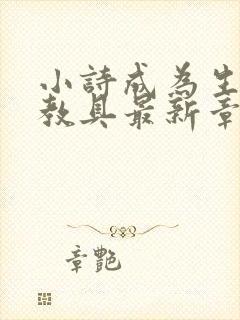 小詩成為生
教具最新章
章艷